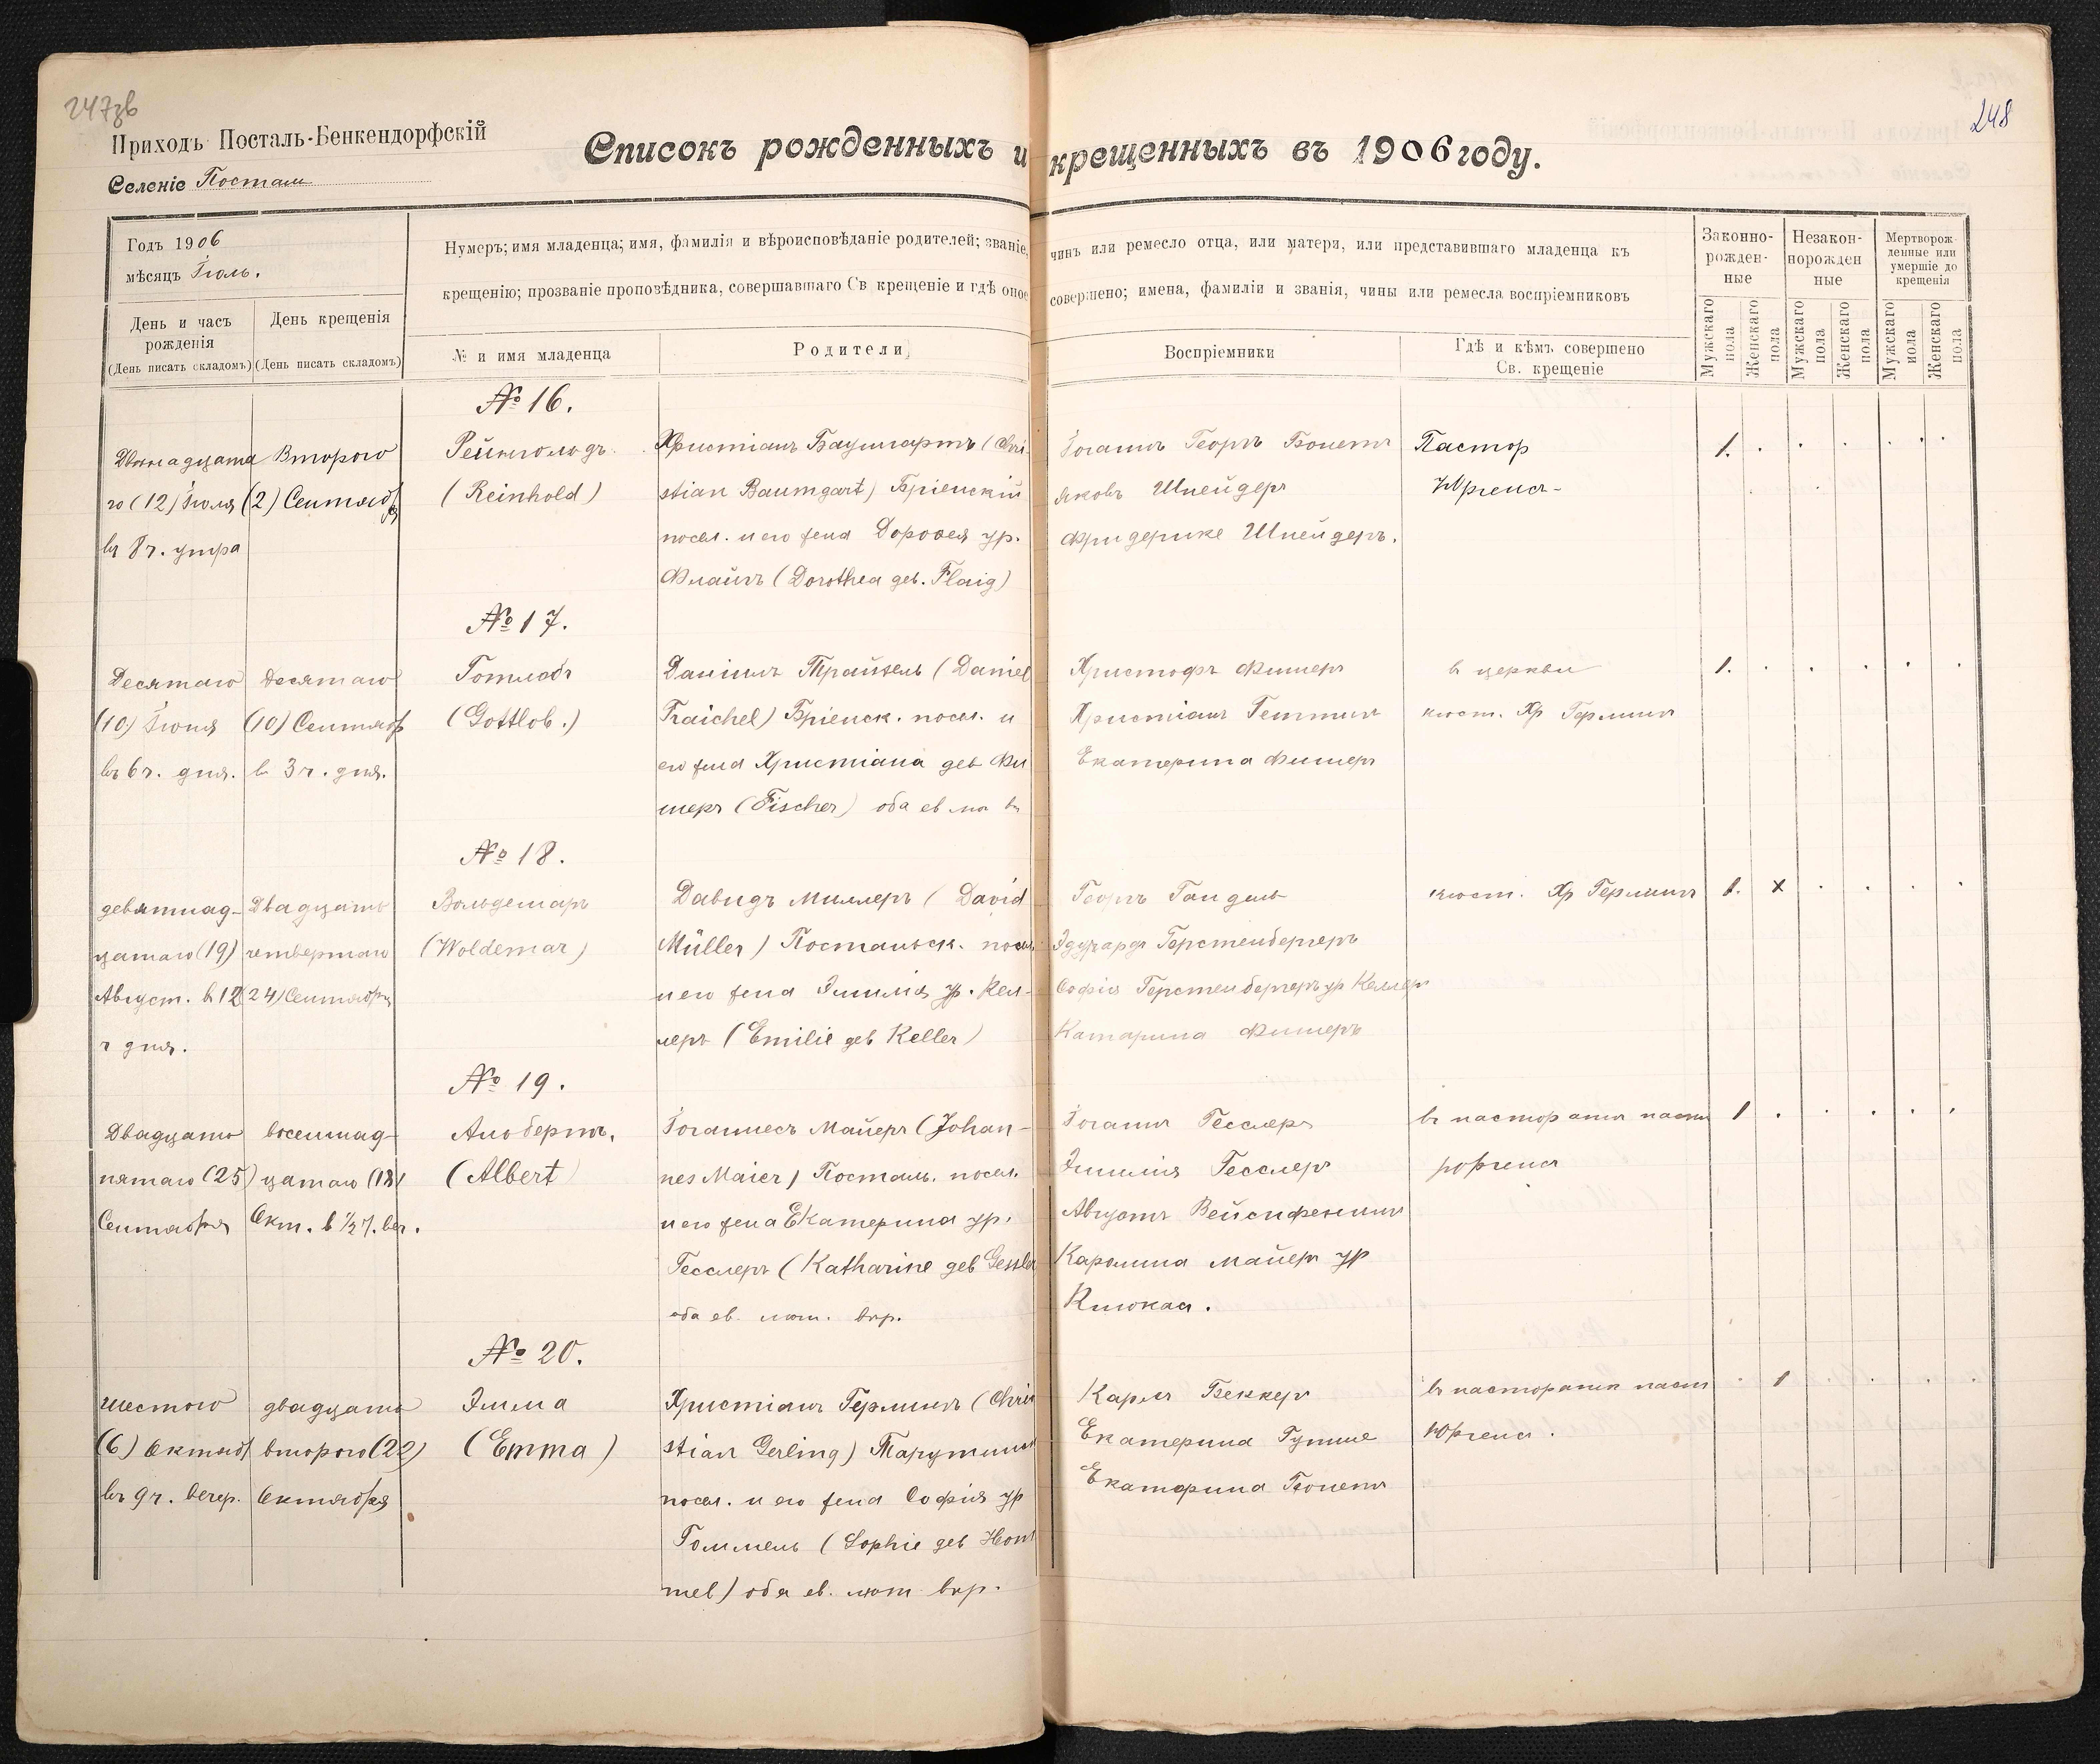 247зв
248
Приходъ Посталь-Бенкендорфскій
Селеніе Посталь
Списокъ рожденныхъ и крещенныхъ въ 1906 году.
Годъ 1906
мѣсяцъ Іюль.
День и часъ рожденія
(День писать складомъ)
День крещенія
(День писать складомъ)
Нумеръ; имя младенца; имя, фамилія и вѣроисповѣданіе родителей; званіе, чинъ или ремесло отца, или матери, или представившаго младенца къ
крещенію; прозваніе проповѣдника, совершавшаго Св крещеніе и гдѣ оное совершено; имена, фамиліи и званія, чины или ремесла воспріемниковъ
№ и имя младенца
Родители
Воспріемники
Гдѣ и кѣмъ совершено
Св. крещеніе
Законно-
рожден-
ные
Незакон-
норожден
ные
Мертворож
денные или
умершіе до
крещенія
Мужскаго пола
Женскаго пола
Мужскаго пола
Женскаго пола
Мужскаго пола
Женскаго пола
№ 16.
Двѣнадцата
го (12) Іюля
въ 8 ч. утра
Второго
(2) Сентябр
Рейнгольдъ
(Reinhold)
Христіанъ Баумгартъ (Chri
stian Baumgart) Бріенскій
посел. и его жена Доровея ур.
Флайгъ (Dorothea geb. Flaig)
Іоганнъ Георгъ Бонетъ
Яковъ Шнейдеръ
Фридерике Шнейдеръ.
Пастор
Юргенс
1.
№ 17.
Десятаго
(10) Іюня
въ 6 ч. дня.
Десятаго
(10) Сентябр
в 3 ч. дня.
Готлобъ
(Gottlob.)
Даніилъ Трайхель (Daniel
Traichel) Бріенск. посел. и
его жена Христіана geb Фи
шеръ (Fischer) оба ев
Христофъ Фишеръ
Христіанъ
Екатерина Фишеръ
в церкви
кюст. Хр Герлингъ
1.
№ 18.
девятнад-
цатаго (19)
Август. в 12
ч дня.
Двадцать
четвертаго
(24) Сентября
Вольдемаръ
(Woldemar)
Давидъ Миллеръ (David
Müller) Постальск. посел
и его жена Эмилія ур. Кел-
леръ (Emilie geb Keller)
Георгъ Гандель
Эдуардъ Герстенбергеръ
Софія Герстенбергеръ ур Келлеръ
Катарина Фишеръ
кюст. Хр Герлингъ
1. х
№ 19.
Двадцать
пятаго (25)
Сентября
восемнад-
цатаго (18)
Окт. в ½7. веч.
Альбертъ.
(Albert)
Іоганнесъ Майеръ (Johan-
nes Maier) Посталь. посел.
и его жена Екатерина ур.
Гесслеръ (Katharine geb Gessler
оба ев. лют. вѣр.
Іоганнъ Гесслеръ
Эмилія Гесслеръ
Августъ
Каролина Майеръ ур
въ пасторатѣ паст
1
№ 20.
шестого
(6) Октяб
въ 9 ч. вечер.
двадцать
второго (22)
Октября
Эмма
(Emma)
Христіанъ Герлингъ (Chri
stian Gerling) Тарутинск
посел. и его жена Софія ур
Гоммель (Sophie geb Hom
mel) оба ев. лют вѣр.
Карлъ Беккеръ
Екатерина
Екатерина Бонетъ
въ пасторатѣ паст
Юргенс.
1